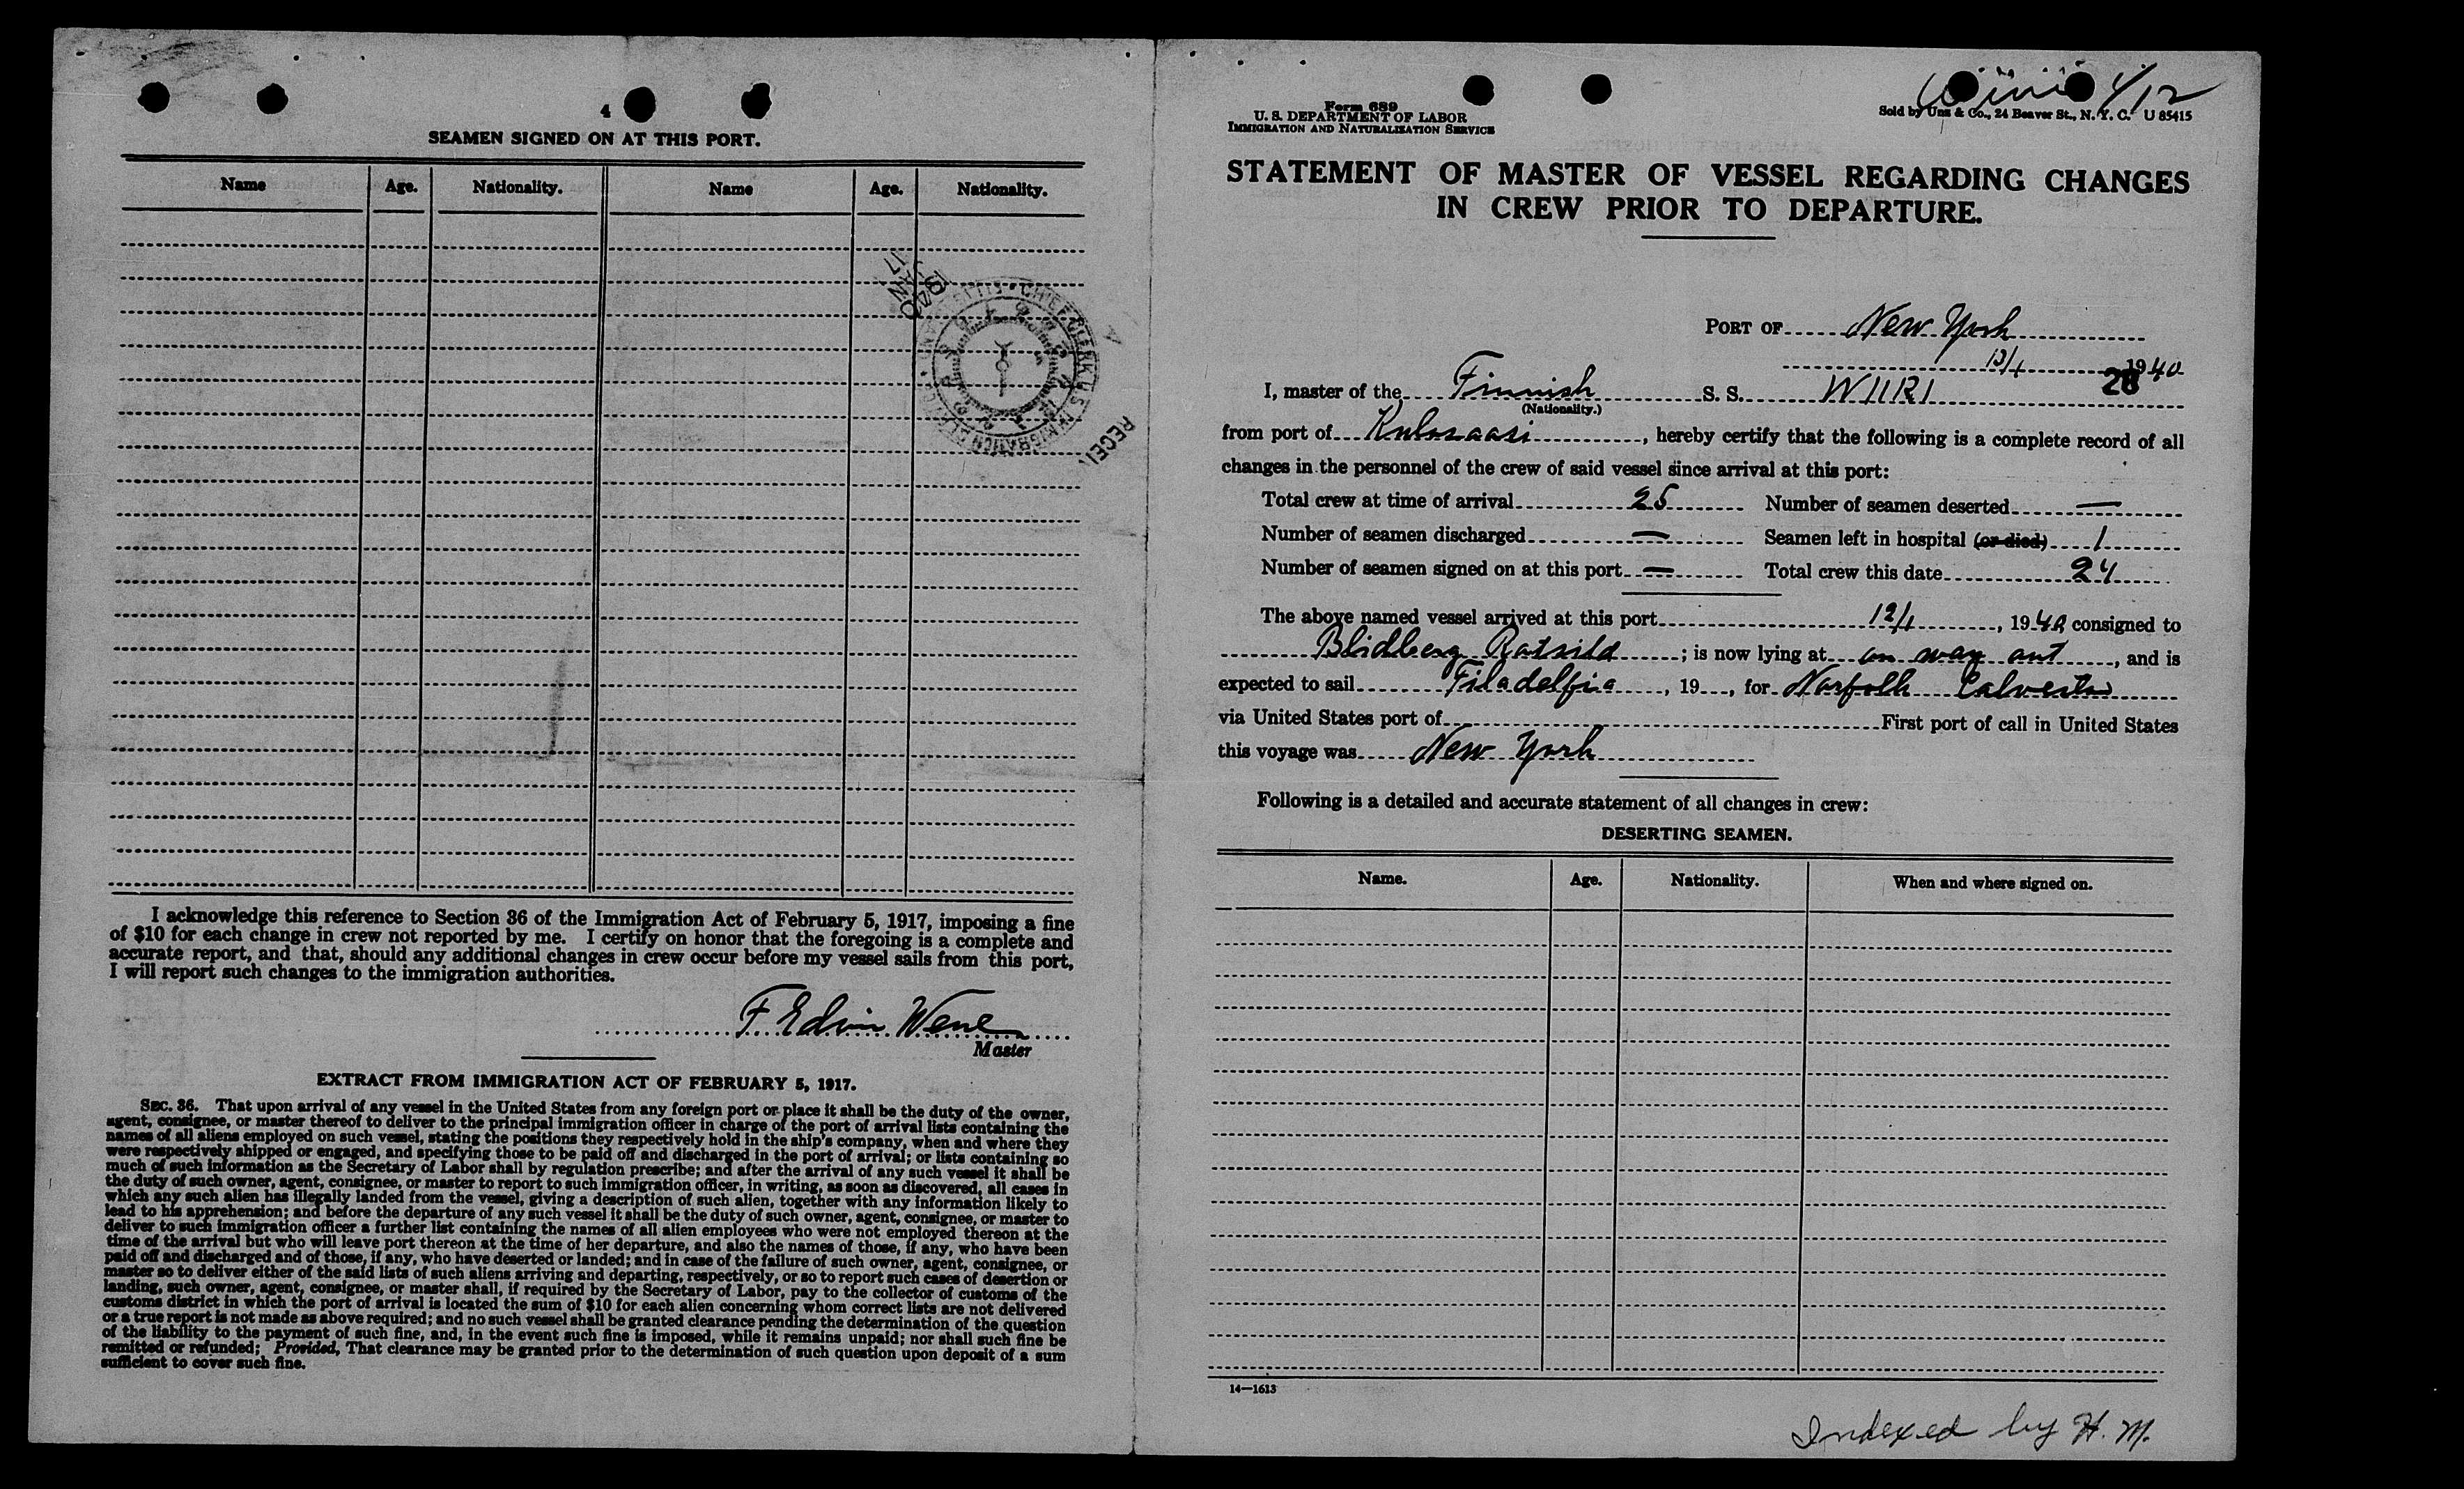 4
SEAMEN SIGNED ON AT THIS PORT.
Name Age. Nationality. Name Age. Nationality.
1940 JAN 17
CHIEF CLERK U.S. IMMIGRATION
RECEI
I acknowledge this reference to Section 36 of the Immigration Act of February 5, 1917, imposing a fine
of $10 for each change in crew not reported by me. I certify on honor that the foregoing is a complete and
accurate report, and that, should any additional changes in crew occur before my vessel sails from this port,
I will report such changes to the immigration authorities.
F. Edvin Wene
Master
EXTRACT FROM IMMIGRATION ACT OF FEBRUARY 5, 1917.
SEC. 36. That upon arrival of any vessel in the United States from any foreign port or place it shall be the duty of the owner,
agent, consignee, or master thereof to deliver to the principal immigration officer in charge of the port of arrival lists containing the
names of all aliens employed on such vessel, stating the positions they respectively hold in the ship's company, when and where they
were respectively shipped or engaged, and specifying those to be paid off and discharged in the port of arrival; or lists containing so
much of such information as the Secretary of Labor shall by regulation prescribe; and after the arrival of any such vessel it shall be
the duty of such owner, agent, consignee, or master to report to such immigration officer, in writing, as soon as discovered, all cases in
which any such alien has illegally landed from the vessel, giving a description of such alien, together with any information likely to
lead to his apprehension; and before the departure of any such vessel it shall be the duty of such owner, agent, consignee, or master to
deliver to such immigration officer a further list containing the names of all alien employees who were not employed thereon at the
time of the arrival but who will leave port thereon at the time of her departure, and also the names of those, if any, who have been
paid off and discharged and of those, if any, who have deserted or landed; and in case of the failure of such owner, agent, consignee, or
master so to deliver either of the said lists of such aliens arriving and departing, respectively, or so to report such cases of desertion or
landing, such owner, agent, consignee, or master shall, if required by the Secretary of Labor, pay to the collector of customs of the
customs district in which the port of arrival is located the sum of $10 for each alien concerning whom correct lists are not delivered
or a true report is not made as above required; and no such vessel shall be granted clearance pending the determination of the question
of the liability to the payment of such fine, and, in the event such fine is imposed, while it remains unpaid; nor shall such fine be
remitted or refunded; Provided, That clearance may be granted prior to the determination of such question upon deposit of a sum
sufficient to cover such fine.
Form 689
U. S. DEPARTMENT OF LABOR
IMMIGRATION AND NATURALIZATION SERVICE
1/12
Sold by Unz & Co., 24 Beaver St., N. Y. C. U 85415
STATEMENT OF MASTER OF VESSEL REGARDING CHANGES
IN CREW PRIOR TO DEPARTURE.
PORT OF New York
13/1 1940
28
I, master of the Finnish S. S. WIIRI
(Nationality.)
from port of Kulosaari, hereby certify that the following is a complete record of all
changes in the personnel of the crew of said vessel since arrival at this port:
Total crew at time of arrival 25 Number of seamen deserted —
Number of seamen discharged — Seamen left in hospital (or died) 1
Number of seamen signed on at this port — Total crew this date 24
The above named vessel arrived at this port 12/1, 1940 consigned to
Blidberg Rotsild; is now lying at on way out, and is
expected to sail Filadelfia, 19, for Norfolk Galveston
via United States port of First port of call in United States
this voyage was New York
Following is a detailed and accurate statement of all changes in crew:
DESERTING SEAMEN.
Name. Age. Nationality. When and where signed on.
14—1613
Indexed by H. M.